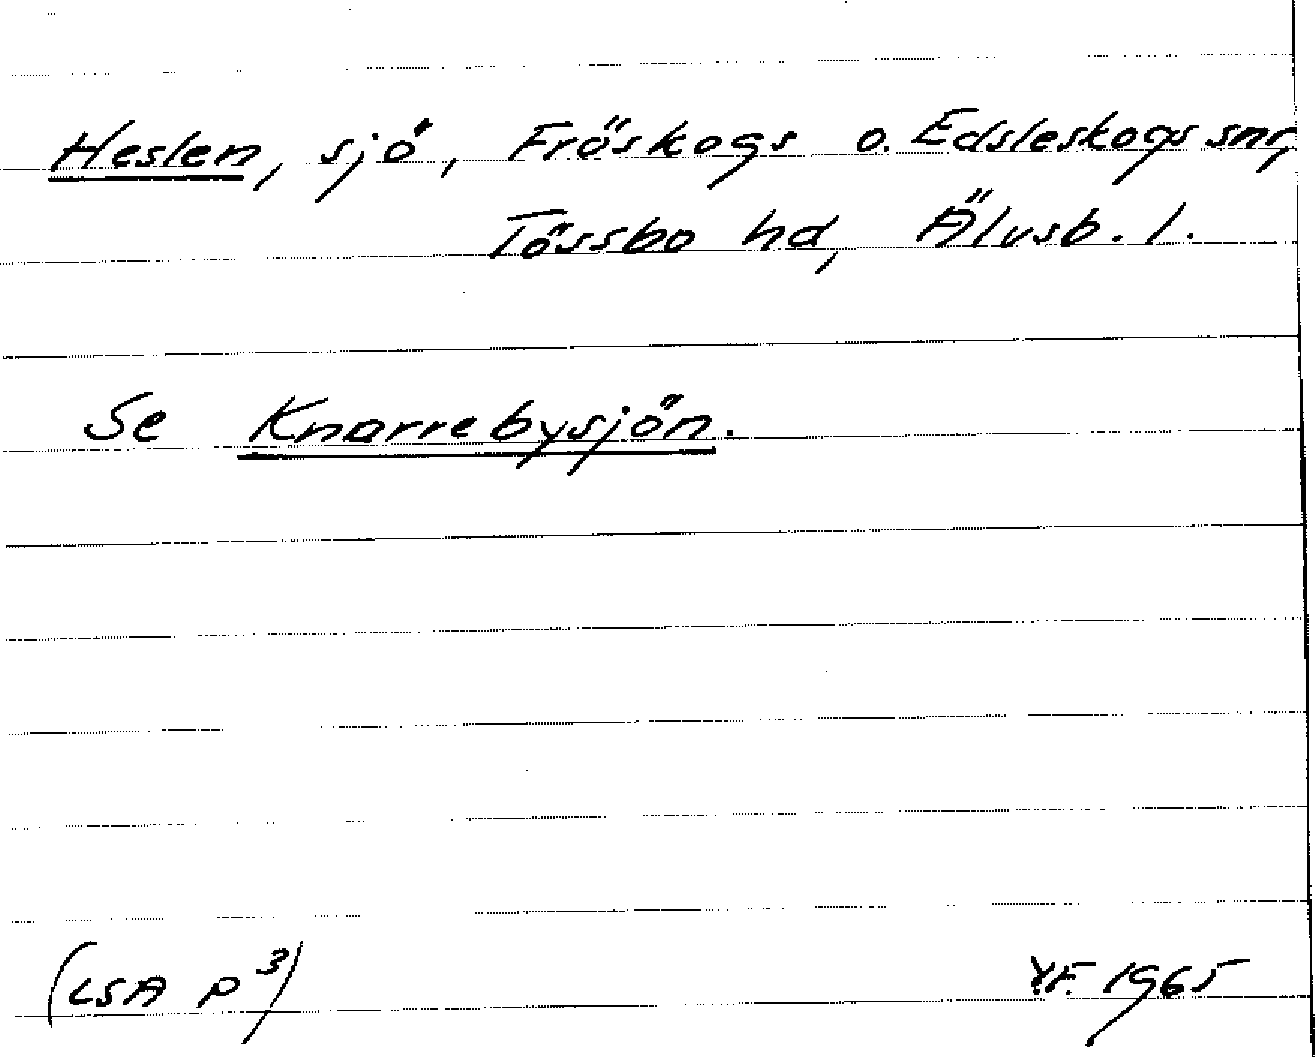 Heslen, sjö, Fröskogs o. Edsleskogs snr,
Tössbo hd, Älvsb. l.
Se Knarrebysjön.
(LSA P³) Y.F. 1965